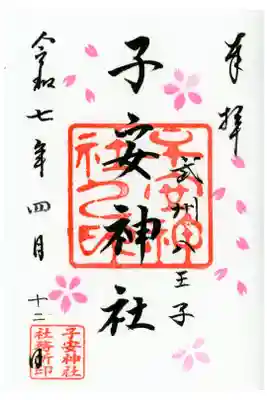 奉拝
武州八王子
子安神社
子安神社之印
令和七年四月十二日
子安神社社務所印